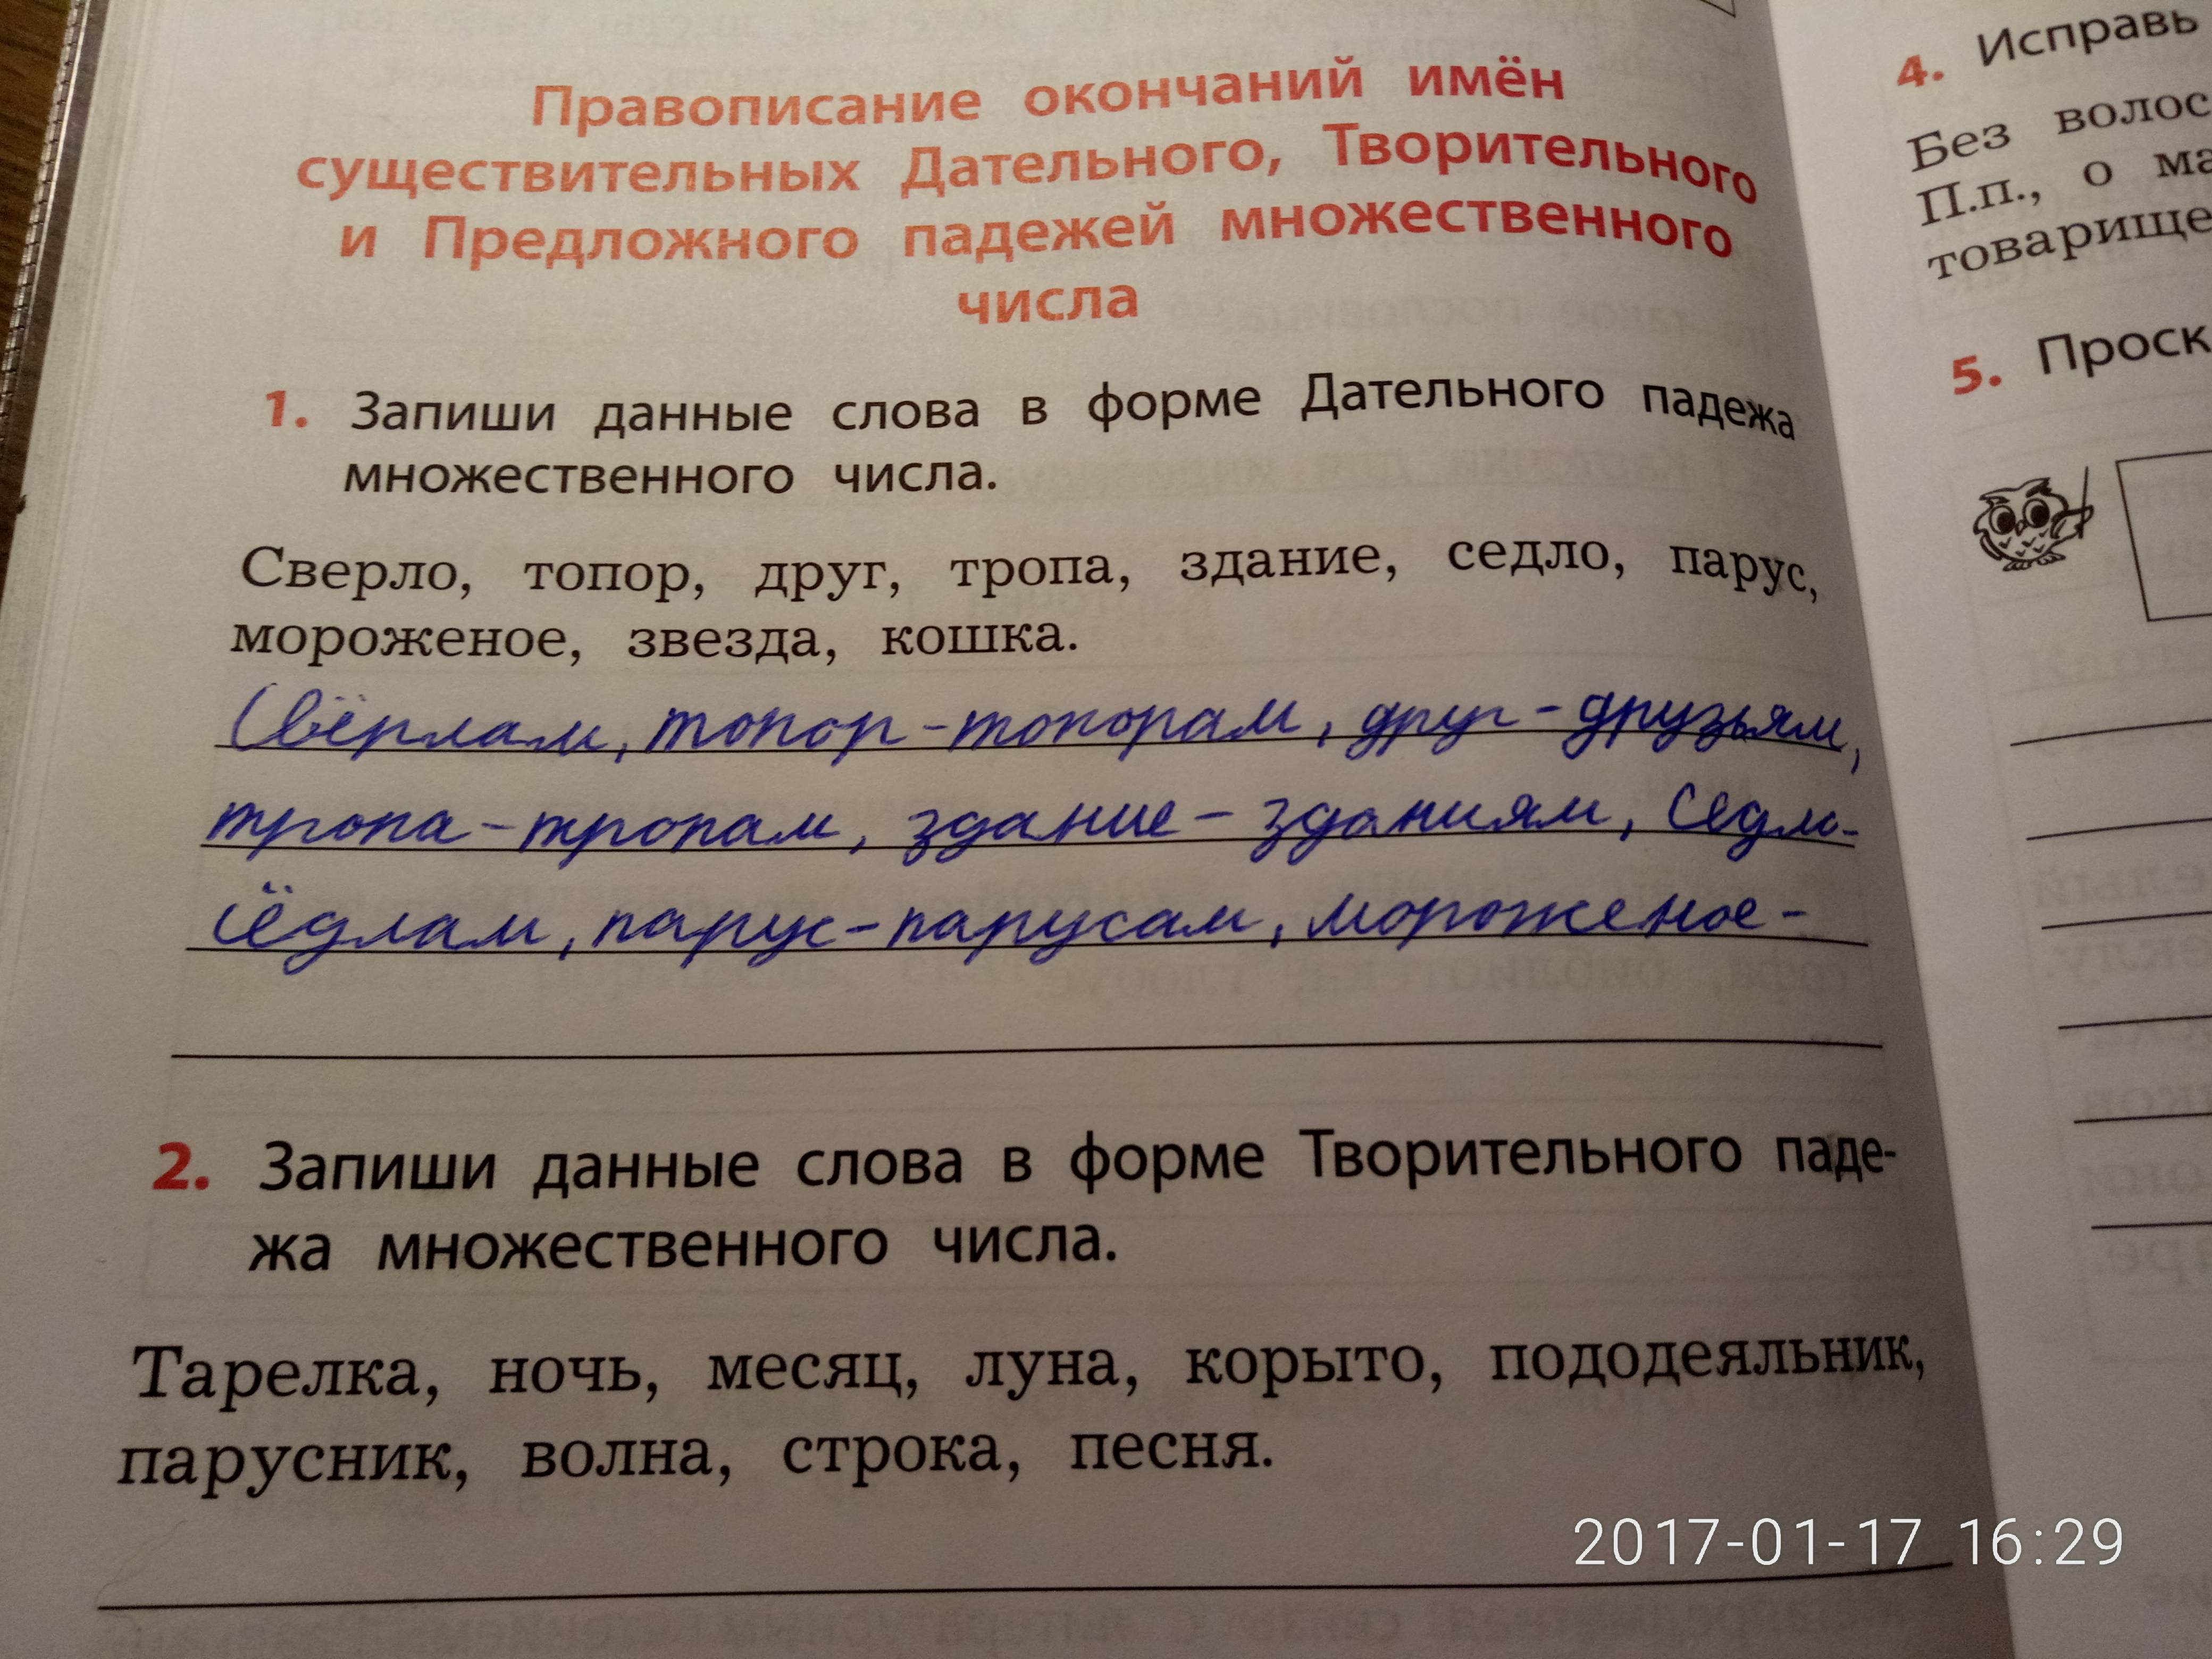 Правописание окончаний имён
существительных Дательного, Творительного
и Предложного падежей множественного
числа
1. Запиши данные слова в форме Дательного падежа
множественного числа.
Сверло, топор, друг, тропа, здание, седло, парус,
мороженое, звезда, кошка.
Свёрлам, топор - топорам, друг - друзьям,
тропа - тропам, здание - зданиям, седло-
сёдлам, парус - парусам, мороженое -
2. Запиши данные слова в форме Творительного паде-
жа множественного числа.
Тарелка, ночь, месяц, луна, корыто, пододеяльник,
парусник, волна, строка, песня.
4. Исправь
Без волос
П.п., о ма
товарище
5. Проск
2017-01-17 16:29